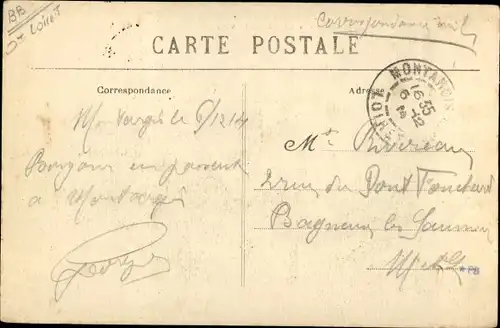 BB
Dt Loiret
Correspondance mil
CARTE POSTALE
Correspondance
Adresse
MONTARGIS
16 35
6 -12
14
LOIRET
Montargis le 6/12 14
Bonjour en passant
a Montargis
Georges
Mr
2 rue du Pont Fouchard
Bagneux les Saumur
M et L